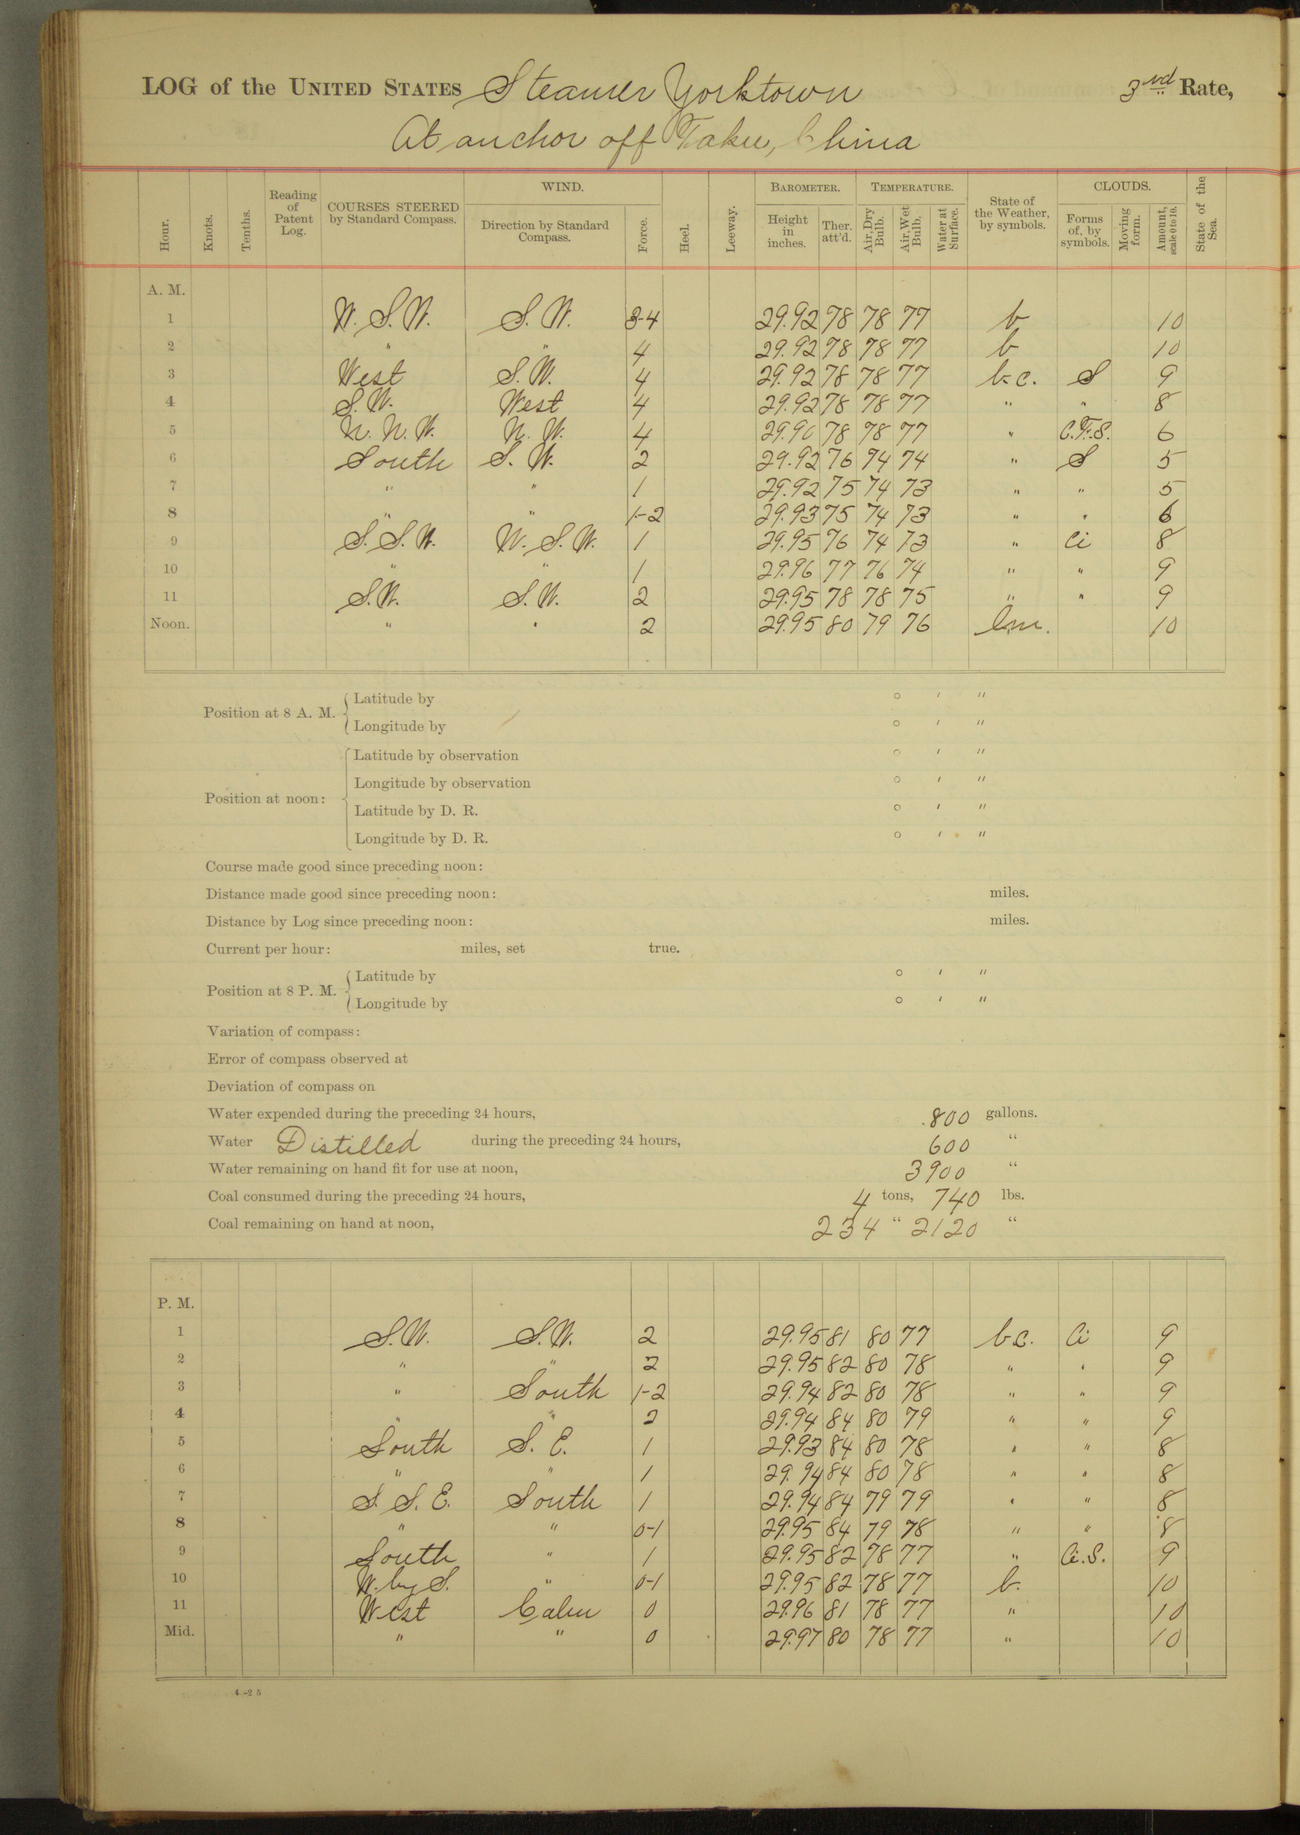 LOG of the UNITED STATES Steamer Yorktown 3rd Rate,
At anchor off Taku, China
Hour. Knots. Tenths. Reading of Patent Log. COURSES STEERED by Standard Compass. WIND. Direction by Standard Compass. Force. Heel. Leeway. BAROMETER. Height in inches. Ther. att'd. TEMPERATURE. Air, Dry Bulb. Air, Wet Bulb. Water at Surface. State of the Weather, by symbols. CLOUDS. Forms of, by symbols. Moving form. Amount, scale 0 to 10. State of the Sea.
A. M.
1 W. S. W. S. W. 3-4 29.92 78 78 77 b 10
2 " " 4 29.92 78 78 77 b 10
3 West S. W. 4 29.92 78 78 77 b.c. S 9
4 S. W. West 4 29.92 78 78 77 " " 8
5 N. N. W. N. W. 4 29.90 78 78 77 " C.F.S. 6
6 South S. W. 2 29.92 76 74 74 " S 5
7 " " 1 29.92 75 74 73 " " 5
8 " " 1-2 29.93 75 74 73 " " 6
9 S. S. W. W. S. W. 1 29.95 76 74 73 " Ci 8
10 " " 1 29.96 77 76 74 " " 9
11 S. W. S. W. 2 29.95 78 78 75 " " 9
Noon. " " 2 29.95 80 79 76 b.m. 10
Position at 8 A. M. Latitude by ° ′ ″
Longitude by ° ′ ″
Position at noon: Latitude by observation ° ′ ″
Longitude by observation ° ′ ″
Latitude by D. R. ° ′ ″
Longitude by D. R. ° ′ ″
Course made good since preceding noon:
Distance made good since preceding noon: miles.
Distance by Log since preceding noon: miles.
Current per hour: miles, set true.
Position at 8 P. M. Latitude by ° ′ ″
Longitude by ° ′ ″
Variation of compass:
Error of compass observed at
Deviation of compass on
Water expended during the preceding 24 hours, 800 gallons.
Water Distilled during the preceding 24 hours, 600 "
Water remaining on hand fit for use at noon, 3900 "
Coal consumed during the preceding 24 hours, 4 tons, 740 lbs.
Coal remaining on hand at noon, 234 " 2120 "
P. M.
1 S. W. S. W. 2 29.95 81 80 77 b.c. Ci 9
2 " " 2 29.95 82 80 78 " " 9
3 " South 1-2 29.94 82 80 78 " " 9
4 " " 2 29.94 84 80 79 " " 9
5 South S. E. 1 29.93 84 80 78 " " 8
6 " " 1 29.94 84 80 78 " " 8
7 S. S. E. South 1 29.94 84 79 79 " " 8
8 " " 0-1 29.95 84 79 78 " " 8
9 South " 1 29.95 82 78 77 " Ci.S. 9
10 W. by S. " 0-1 29.95 82 78 77 b. 10
11 West Calm 0 29.96 81 78 77 " 10
Mid. " " 0 29.97 80 78 77 " 10
4-25